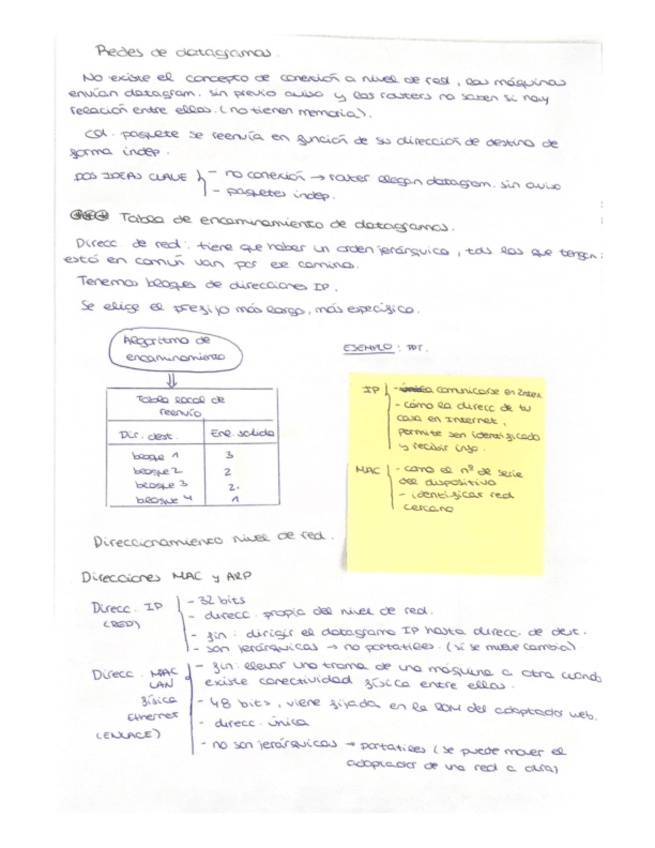 Redes de datagramas.
No existe el concepto de conexión a nivel de red, las máquinas
envían datagram. sin previo aviso y los routers no saben si hay
relación entre ellos. (no tienen memoria).
paquete se reenvía en función de su dirección de destino de
forma indep.
DOS IDEAS CLAVE - no conexión → router llegan datagram. sin aviso
- paquetes indep.
Tabla de encaminamiento de datagramas.
Direcc de red: tiene que haber un orden jerárquico, tds las que tengan
esto en común van por ese camino.
Tenemos bloques de direcciones IP.
Se elige el prefijo más largo, más específico.
Algoritmo de
encaminamiento
EJEMPLO: TDT.
Tabla local de
reenvío
Dir. dest. Enl. salida
bloque 1 3
bloque 2 2
bloque 3 2
bloque 4 1
IP - comunicarse en Inter
- como la direcc de tu
casa en Internet,
permite ser identificado
y recibir info.
MAC - como el nº de serie
del dispositivo
- identificar red
cercana
Direccionamiento nivel de red.
Direcciones MAC y ARP
Direcc. IP
(RED)
- 32 bits
- direcc. propia del nivel de red.
- fin: dirigir el datagrama IP hasta direcc. de dest.
- son jerárquicas → no portatiles. (si se mueve cambia)
Direcc. MAC
LAN
física
Ethernet
(ENLACE)
- fin: llevar una trama de una máquina a otra cuando
existe conectividad física entre ellas.
- 48 bits, viene fijada en la ROM del adaptador web.
- direcc. única
- no son jerárquicas → portatiles (se puede mover el
adaptador de una red a otra)